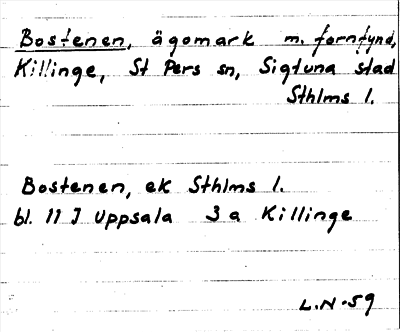 Bostenen, ägomark m. fornfynd,
Killinge, St Pers sn, Sigtuna stad
Sthlms l.
Bostenen, ek Sthlms l.
bl. 11 I Uppsala 3 a Killinge
L.N. 59